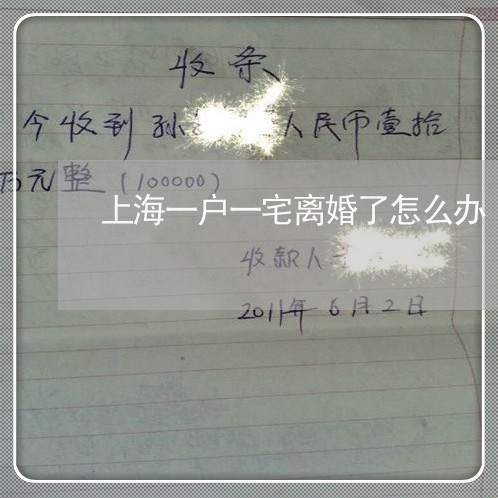 收条
今收到孙 人民币壹拾
万元整(100000)
上海一户一宅离婚了怎么办
收款人
2011年6月2日